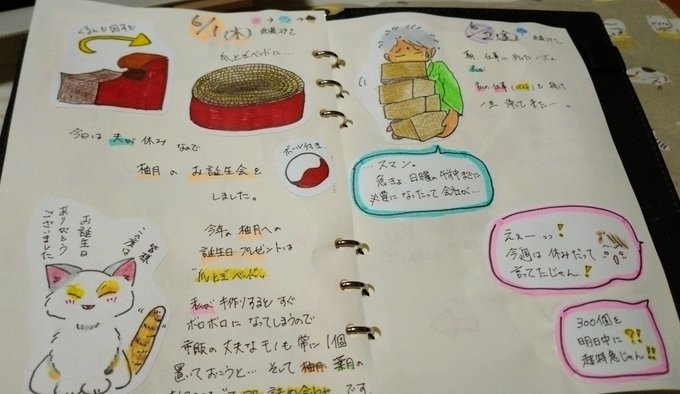 くるんと回すと
6/1(木)
爪とぎベッドに…
今日は 夫が 休み なので
柚月 の お誕生会を
しました。
ボール付き
今年は 柚月への
誕生日 プレゼントは
"爪とぎベッド"。
私が 手作りすると すぐ
ボロボロに なってしまうので
市販の 丈夫な モノも 常に 1個
置いておこうと… そして 柚月 葉月の
です。
皆様
お誕生日
ありがとう
ございました
(金)
朝、仕事に 行った ハズの
夫が
私の 仕事 を 持って
帰って 来た…。
…スマン。
急きょ 日曜の 午前中までに
必要に なったって 会社が…
えぇーっっ!
今週は 休みだって
言ってたじゃん!
300個を
明日中に?!
超特急じゃん!!